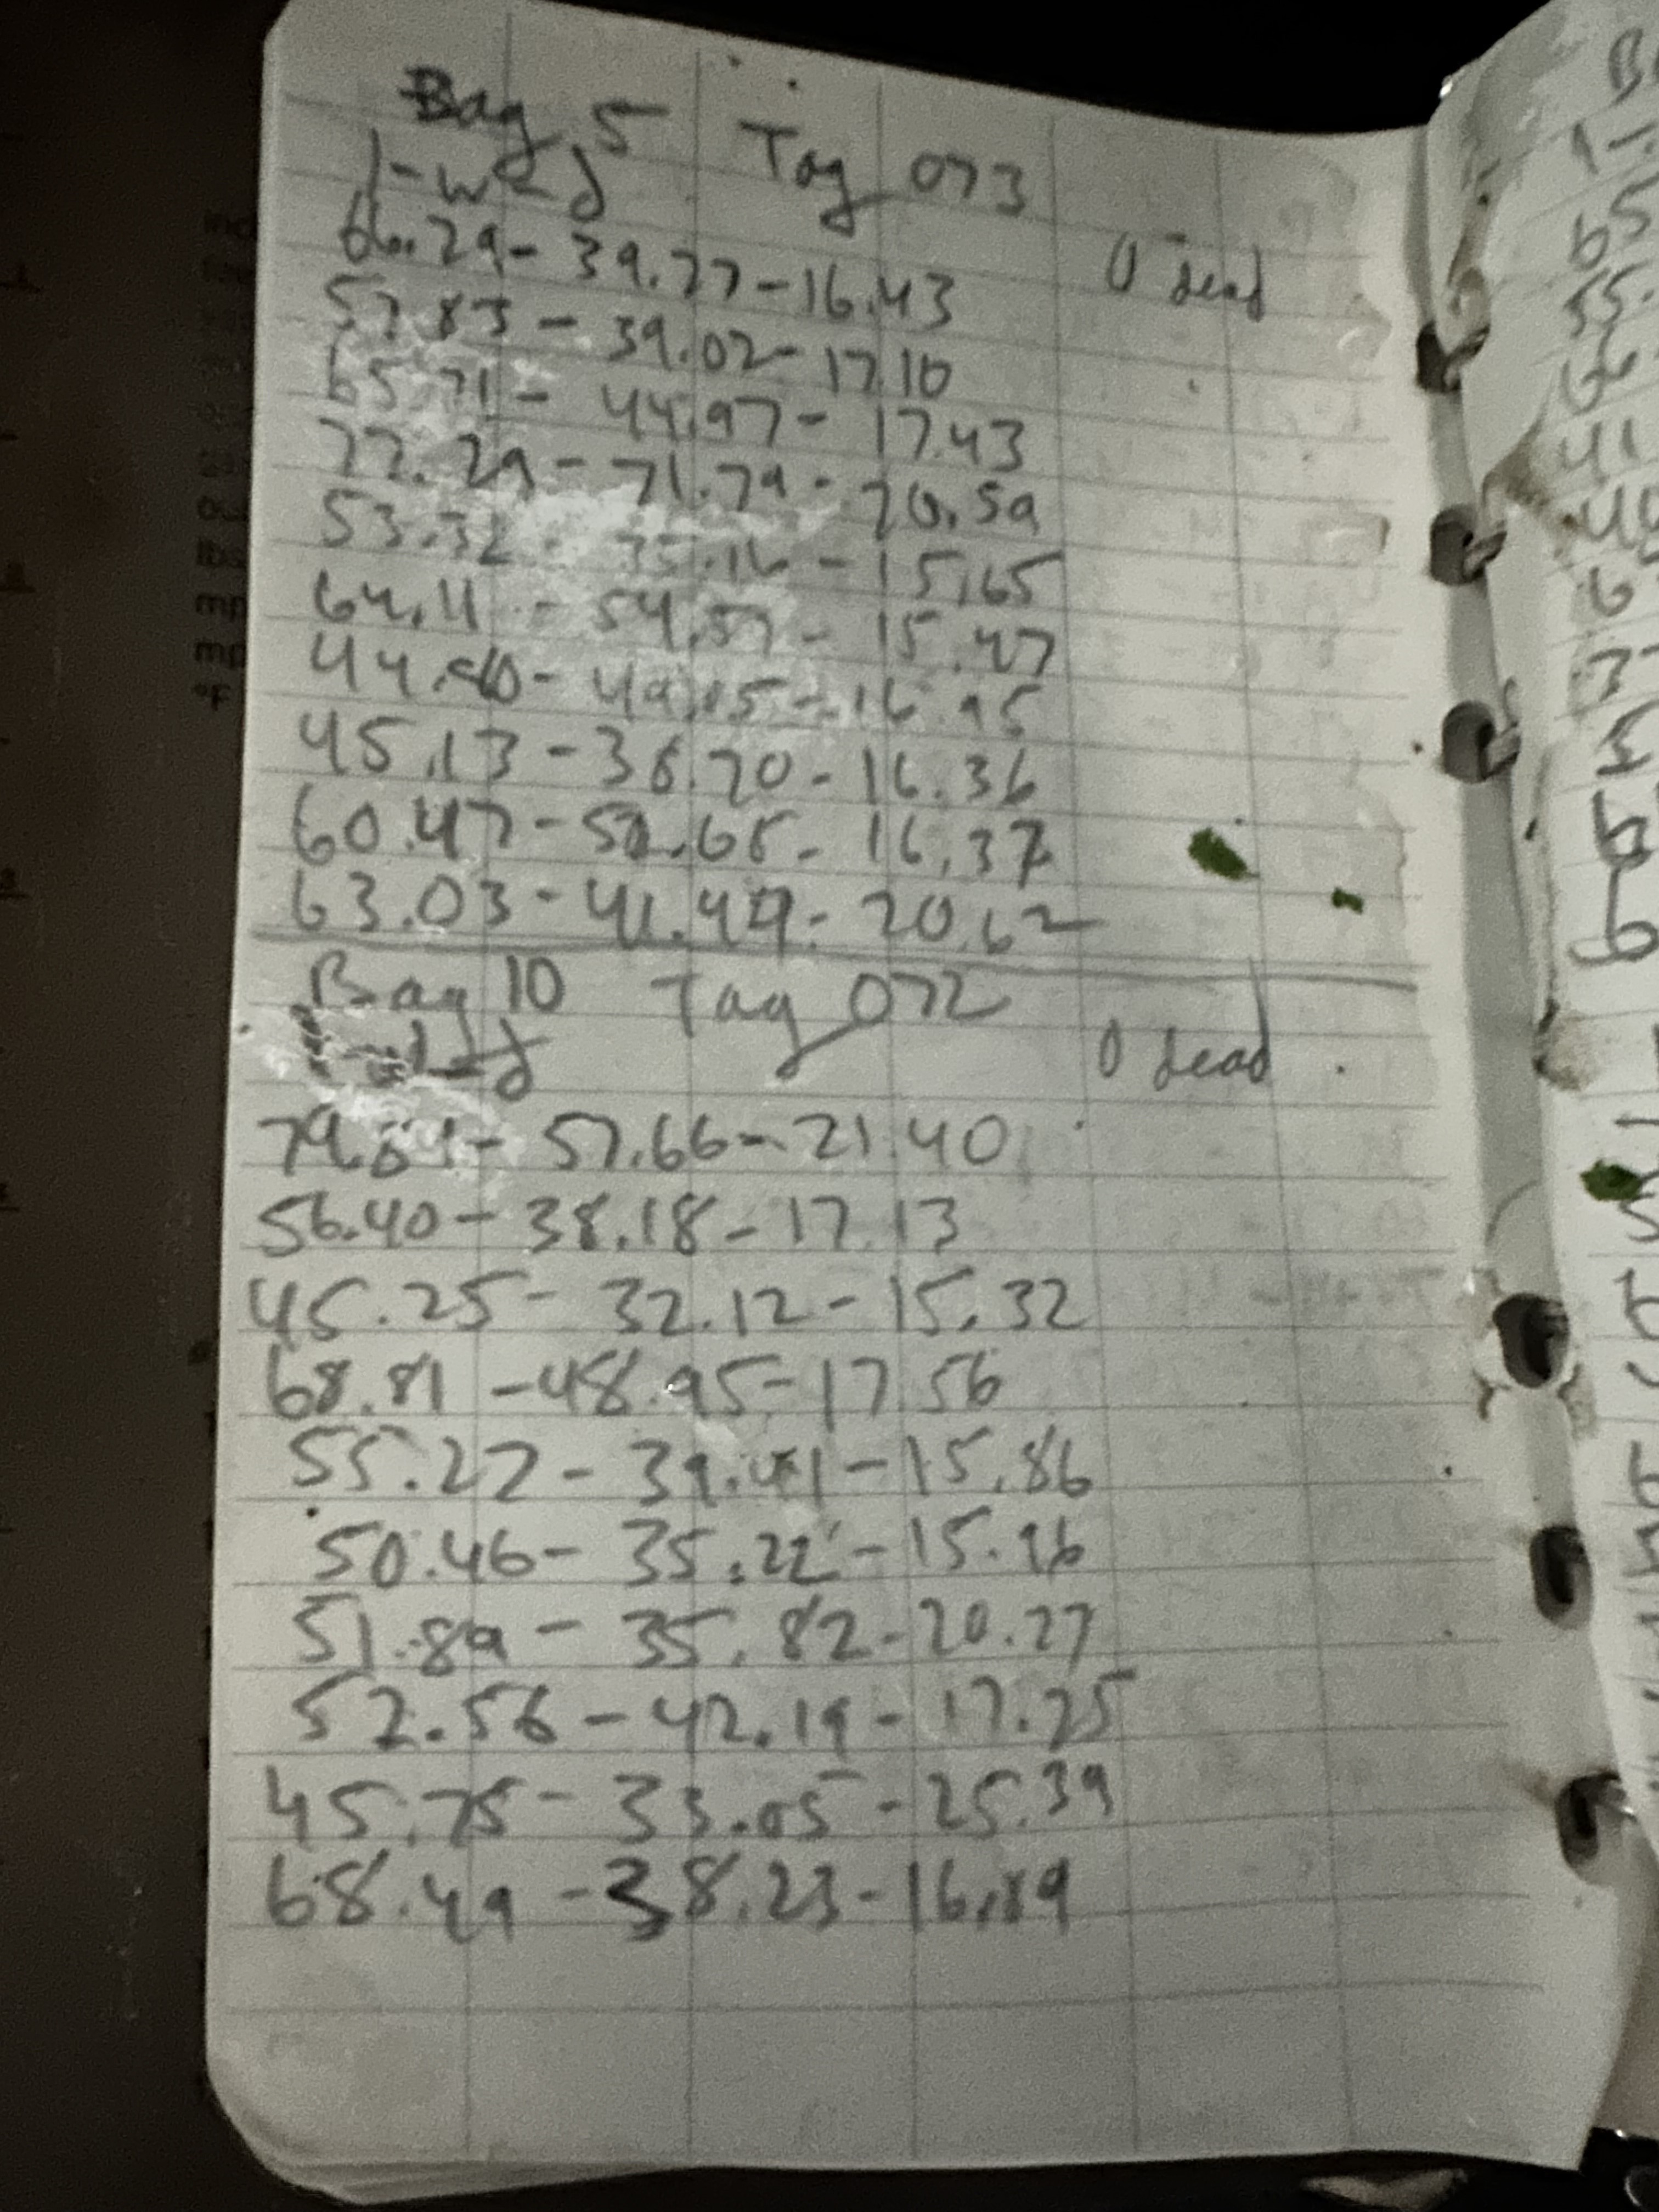 Bag 5 Tag 073
l-w-d
66.29 - 39.77 - 16.43
0 dead
57.83 - 39.02 - 17.10
65.71 - 44.97 - 17.43
77.29 - 71.79 - 20.59
53.32 - 35.16 - 15.65
64.11 - 54.57 - 15.47
- 16.95
45.13 - 36.70 - 16.36
60.47 - - 16.37
63.03 - 41.49 - 20.62
Bag 10 Tag 072
l-w-d
0 dead
- 57.66 - 21.40
56.40 - 38.18 - 17.13
45.25 - 32.12 - 15.32
68.81 - 48.95 - 17.56
55.27 - 39.41 - 15.86
50.46 - 35.22 - 15.96
51.89 - 35.82 - 20.27
52.56 - 42.19 - 17.25
45.75 - 33.05 - 25.39
68.49 - 38.23 - 16.89